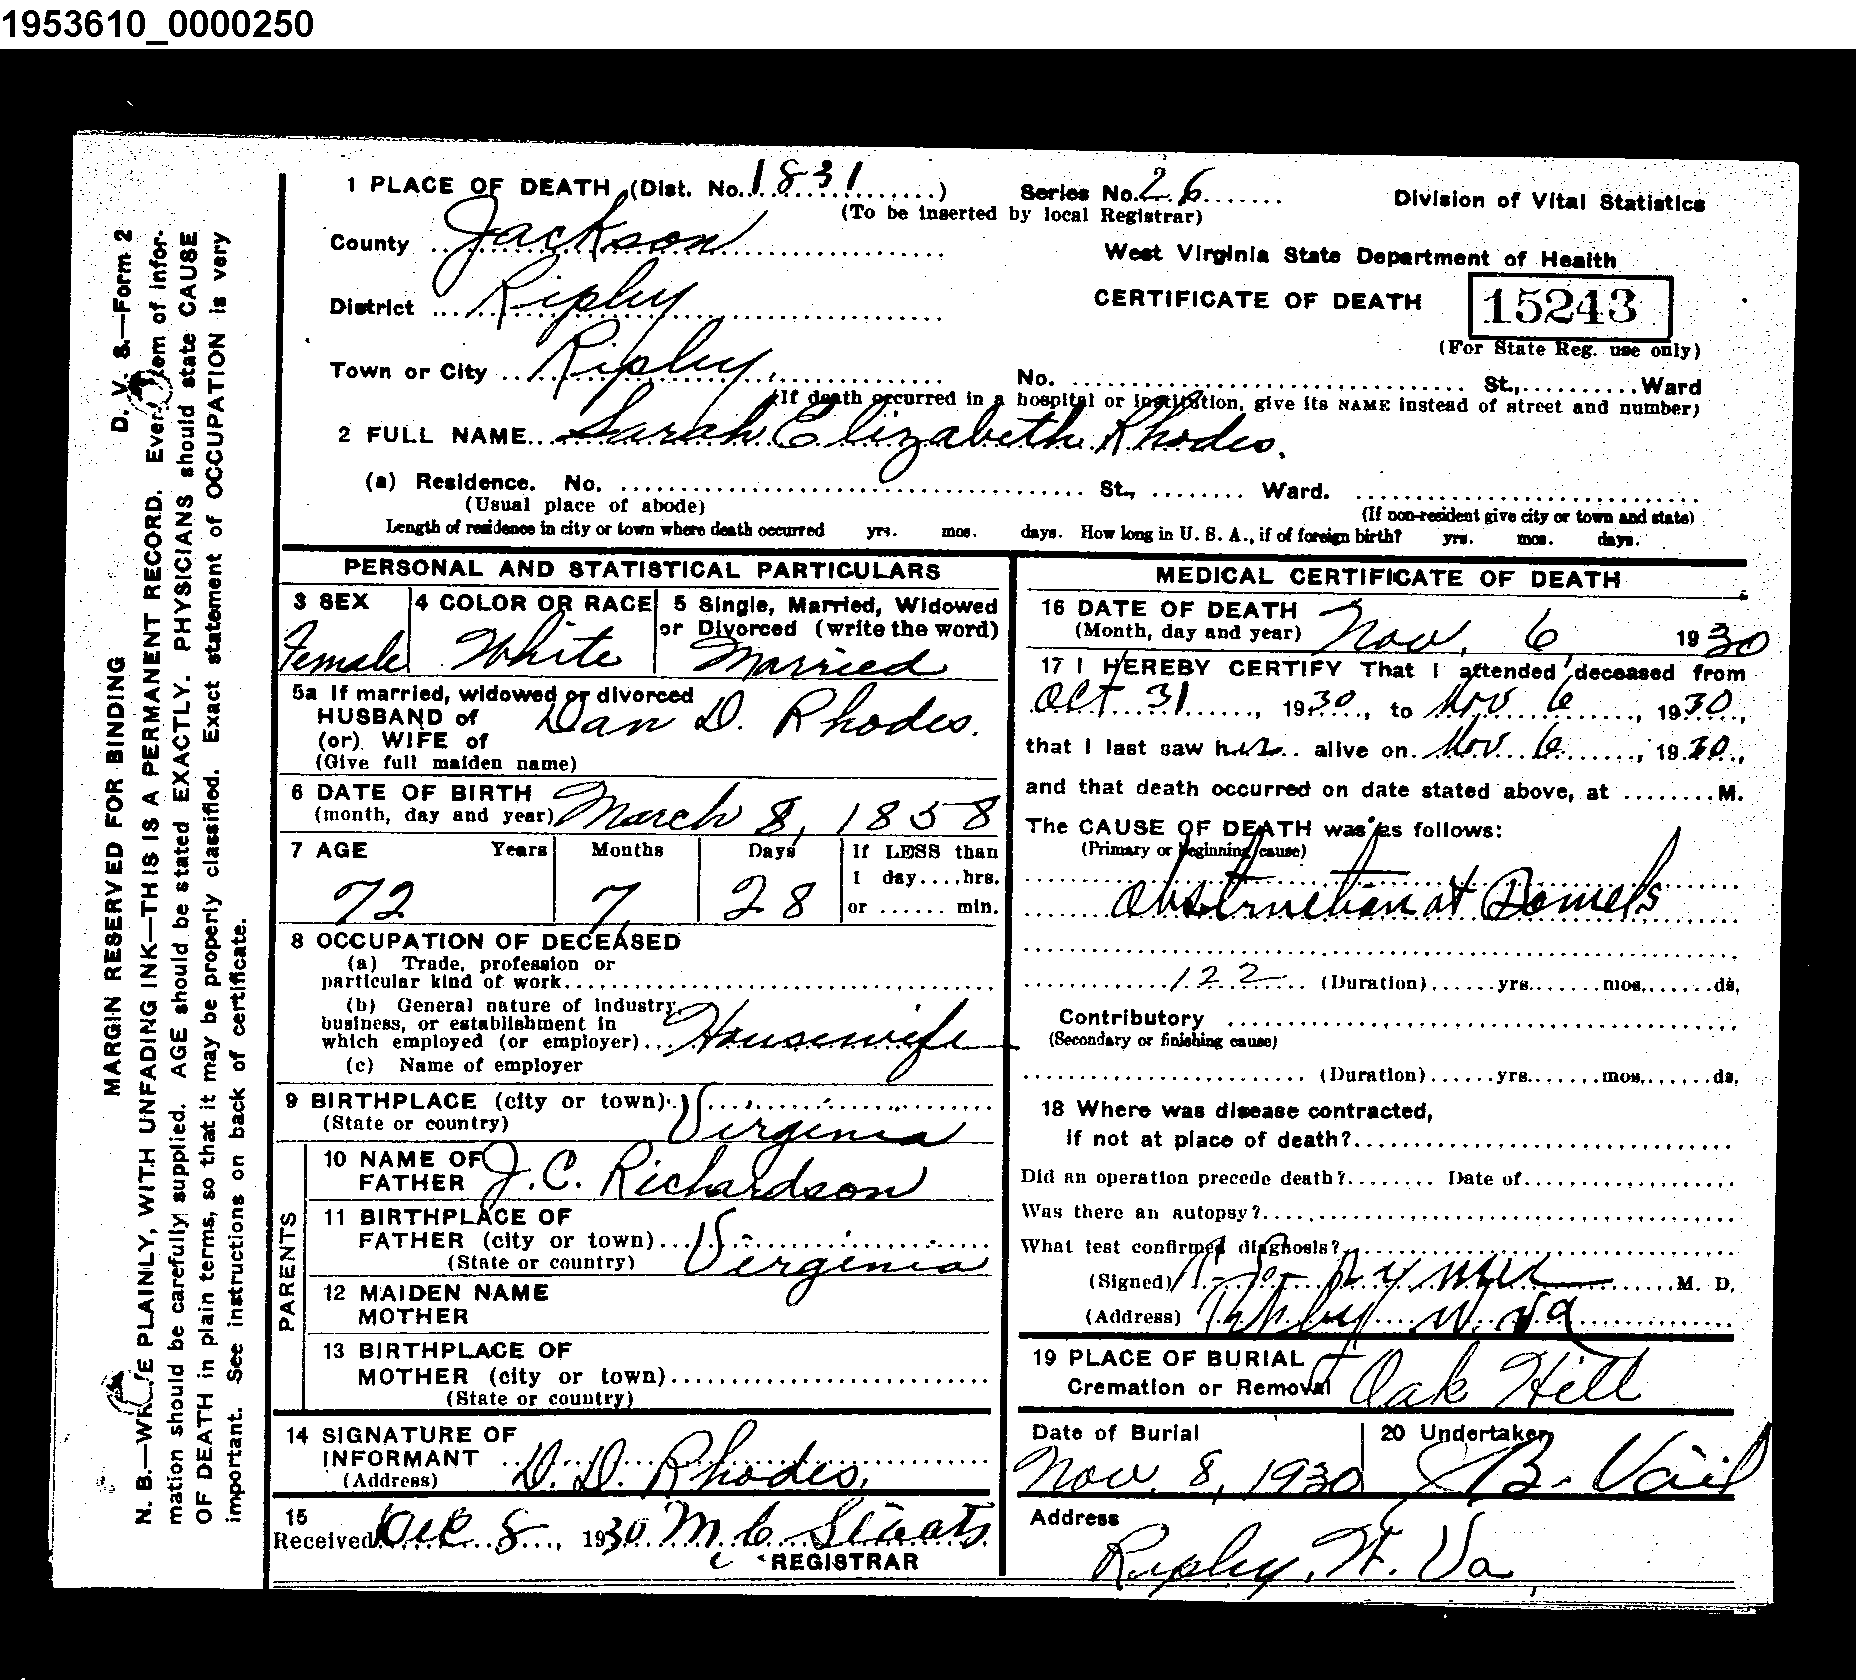 1953610_0000250
1 PLACE OF DEATH (Dist. No. 1831) Series No. 26 Division of Vital Statistics
(To be inserted by local Registrar)
County Jackson West Virginia State Department of Health
District Ripley CERTIFICATE OF DEATH 15243
(For State Reg. use only)
Town or City Ripley, No. St., Ward
(If death occurred in a hospital or institution, give its NAME instead of street and number)
2 FULL NAME Sarah Elizabeth Rhodes.
(a) Residence. No. St., Ward.
(Usual place of abode) (If non-resident give city or town and state)
Length of residence in city or town where death occurred yrs. mos. days. How long in U. S. A., if of foreign birth? yrs. mos. days.
PERSONAL AND STATISTICAL PARTICULARS
3 SEX 4 COLOR OR RACE 5 Single, Married, Widowed
or Divorced (write the word)
Female White Married
5a If married, widowed or divorced
HUSBAND of Dan D. Rhodes.
(or) WIFE of
(Give full maiden name)
6 DATE OF BIRTH
(month, day and year) March 8, 1858
7 AGE Years Months Days If LESS than
1 day....hrs.
72 7 28 or ...... min.
8 OCCUPATION OF DECEASED
(a) Trade, profession or
particular kind of work
(b) General nature of industry
business, or establishment in
which employed (or employer) Housewife
(c) Name of employer
9 BIRTHPLACE (city or town)
(State or country) Virginia
PARENTS
10 NAME OF
FATHER J. C. Richardson
11 BIRTHPLACE OF
FATHER (city or town)
(State or country) Virginia
12 MAIDEN NAME
MOTHER
13 BIRTHPLACE OF
MOTHER (city or town)
(State or country)
14 SIGNATURE OF
INFORMANT D. D. Rhodes.
(Address)
15
Received Dec 8, 1930 M C Staats
REGISTRAR
MEDICAL CERTIFICATE OF DEATH
16 DATE OF DEATH
(Month, day and year) Nov. 6, 1930
17 I HEREBY CERTIFY That I attended deceased from
Oct 31, 1930, to Nov 6, 1930,
that I last saw her alive on Nov 6, 1930,
and that death occurred on date stated above, at ........M.
The CAUSE OF DEATH was as follows:
(Primary or beginning cause)
Obstruction of Bowels
122 (Duration)......yrs.......mos.......ds.
Contributory
(Secondary or finishing cause)
(Duration)......yrs.......mos.......ds.
18 Where was disease contracted,
if not at place of death?
Did an operation precede death? Date of
Was there an autopsy?
What test confirmed diagnosis?
(Signed) M. D.
(Address) Ripley W. Va
19 PLACE OF BURIAL
Cremation or Removal Oak Hill
Date of Burial 20 Undertaker
Nov. 8, 1930 B. Vail
Address
Ripley, W. Va.
D. V. S.—Form 2
MARGIN RESERVED FOR BINDING
N. B.—WRITE PLAINLY, WITH UNFADING INK—THIS IS A PERMANENT RECORD. Every item of infor-
mation should be carefully supplied. AGE should be stated EXACTLY. PHYSICIANS should state CAUSE
OF DEATH in plain terms, so that it may be properly classified. Exact statement of OCCUPATION is very
important. See instructions on back of certificate.